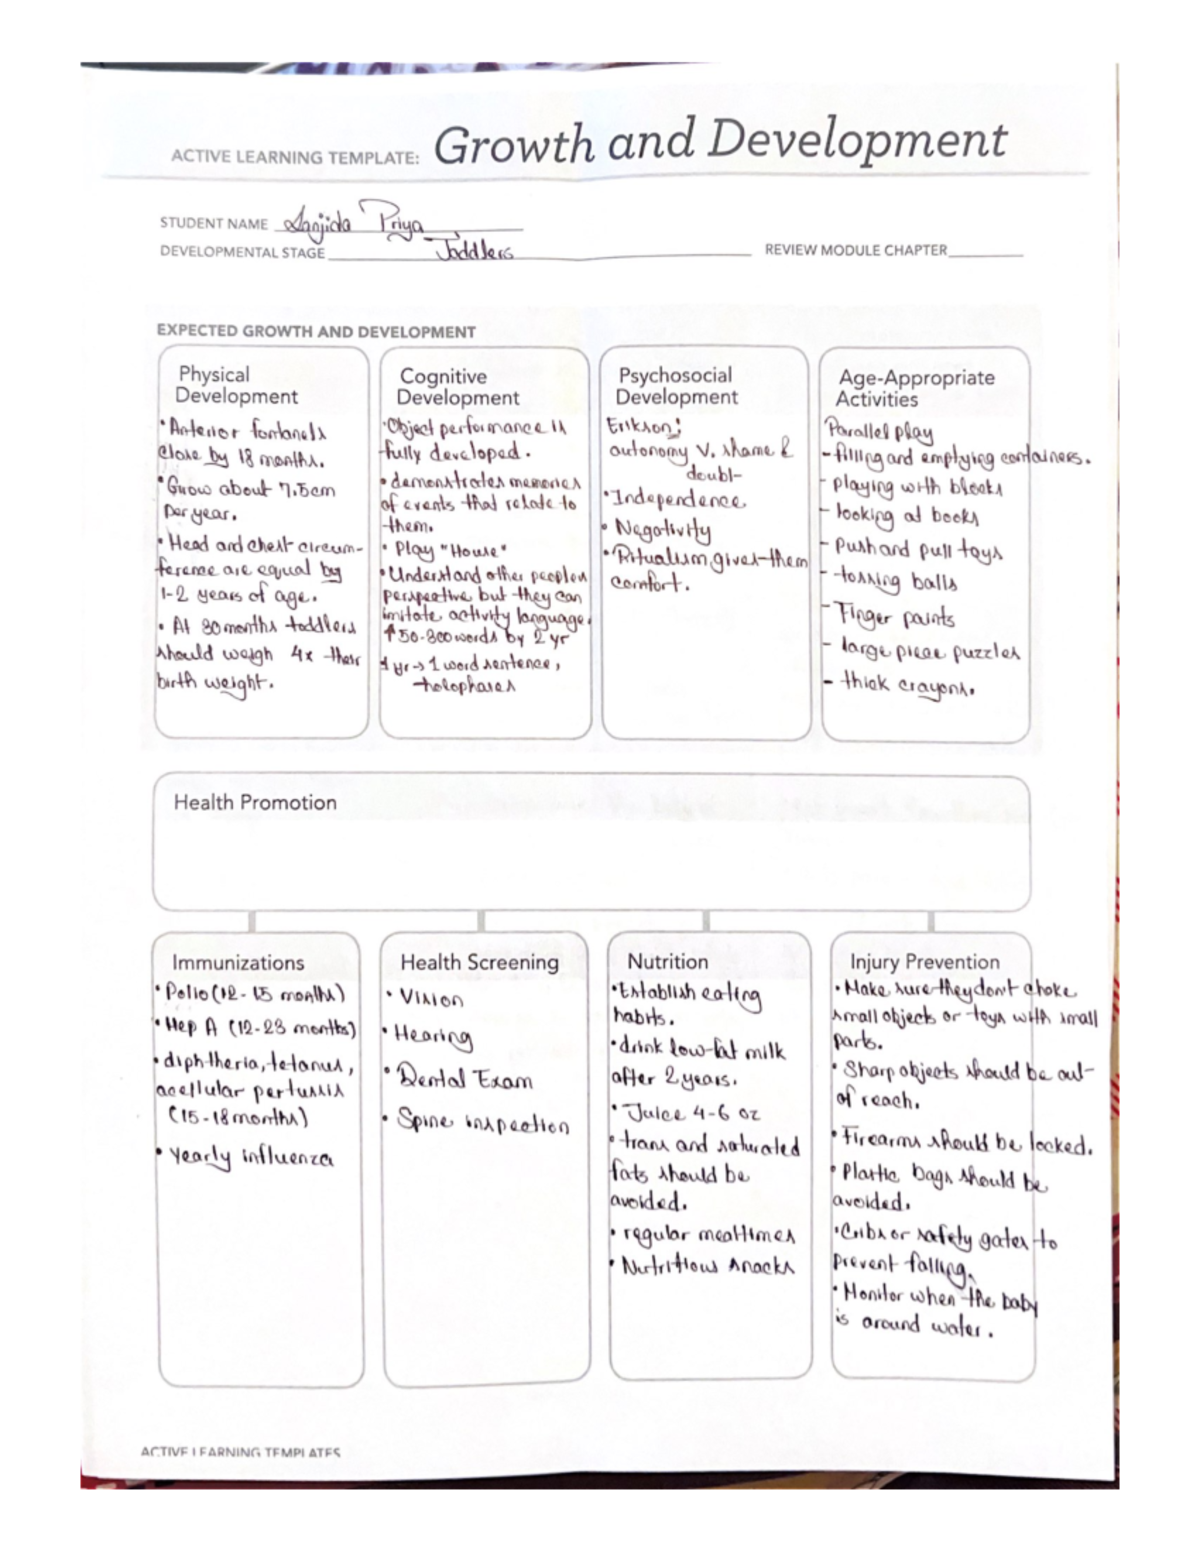 ACTIVE LEARNING TEMPLATE: Growth and Development
STUDENT NAME Sanjida Priya
DEVELOPMENTAL STAGE Toddlers
REVIEW MODULE CHAPTER
EXPECTED GROWTH AND DEVELOPMENT
Physical
Development
• Anterior fontanels
close by 18 months.
• Grow about 7.5cm
per year.
• Head and chest circum-
ference are equal by
1-2 years of age.
• At 30 months toddlers
should weigh 4x their
birth weight.
Cognitive
Development
• Object performance is
fully developed.
• demonstrates memories
of events that relate to
them.
• Play "House"
• Understand other peoples
perspective but they can
imitate activity language.
↑ 50-300 words by 2 yr
1 yr → 1 word sentence,
holophases
Psychosocial
Development
Erikson:
autonomy V. shame &
doubt
• Independence
• Negativity
• Ritualism gives them
comfort.
Age-Appropriate
Activities
Parallel play
- filling and emptying containers.
- playing with blocks
- looking at books
- Push and pull toys
- tossing balls
- Finger paints
- large piece puzzles
- thick crayons.
Health Promotion
Immunizations
• Polio (12-15 months)
• Hep A (12-23 months)
• diphtheria, tetanus,
acellular pertussis
(15-18 months)
• Yearly influenza
Health Screening
• Vision
• Hearing
• Dental Exam
• Spine inspection
Nutrition
• Establish eating
habits.
• drink low-fat milk
after 2 years.
• Juice 4-6 oz
• trans and saturated
fats should be
avoided.
• regular mealtimes
• Nutritious snacks
Injury Prevention
• Make sure they don't choke
small objects or toys with small
parts.
• Sharp objects should be out
of reach.
• Firearms should be locked.
• Plastic bags should be
avoided.
• Cribs or safety gates to
prevent falling.
• Monitor when the baby
is around water.
ACTIVE LEARNING TEMPLATES